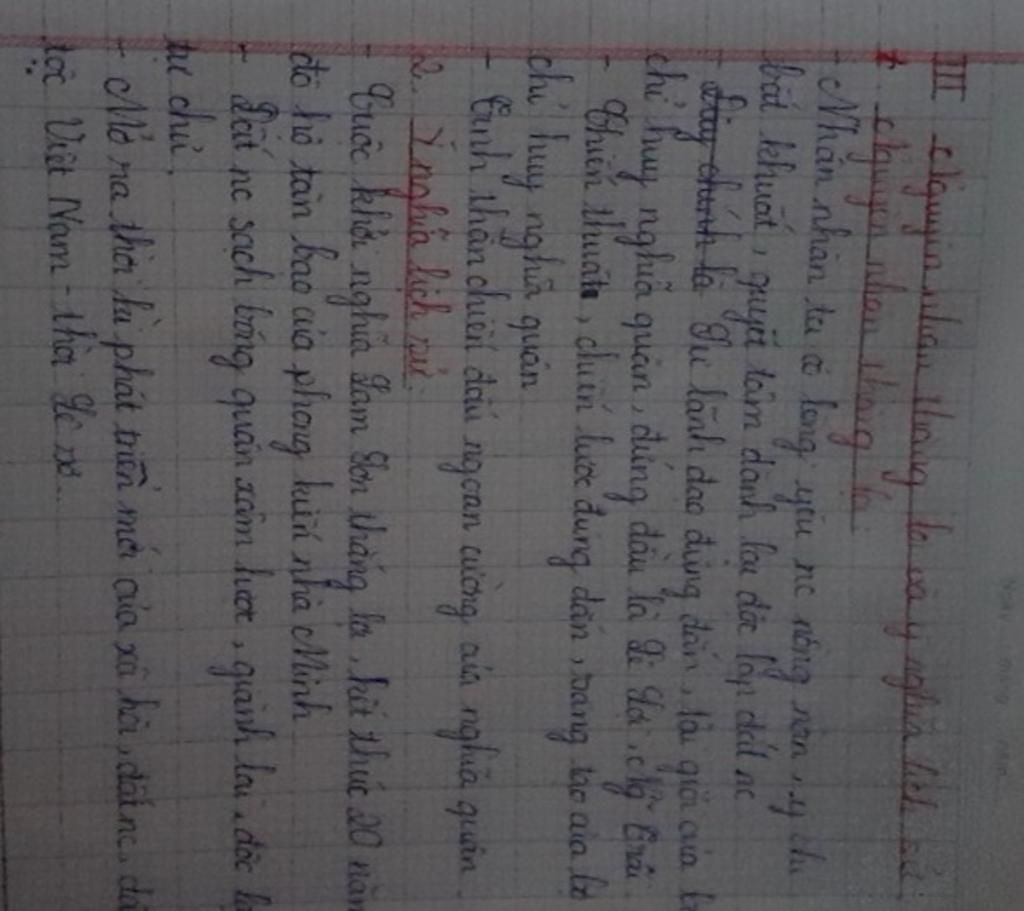 III Nguyên nhân thắng lợi và ý nghĩa lịch sử
1. Nguyên nhân thắng lợi
- Nhân nhân ta có lòng yêu nc nồng nàn, ý chí
bất khuất, quyết tâm dành lại độc lập đất nc
- Đây chính là Sự lãnh đạo đúng đắn, tài giỏi của
chỉ huy nghĩa quân, đứng đầu là Lê Lợi, Ng Trãi
- Chiến thuật, chiến lược đúng đắn, sáng tạo của bộ
chỉ huy nghĩa quân
- Tinh thần chiến đấu ngoan cường của nghĩa quân.
2. Ý nghĩa lịch sử
- Cuộc khởi nghĩa Lam Sơn thắng lợi, kết thúc 20 năm
đô hộ tàn bạo của phong kiến nhà Minh
- Đất nc sạch bóng quân xâm lược, giành lại độc
tự chủ.
- Mở ra thời kì phát triển mới của xã hội, đất nc, dâ
tộc Việt Nam - thời Lê sơ.